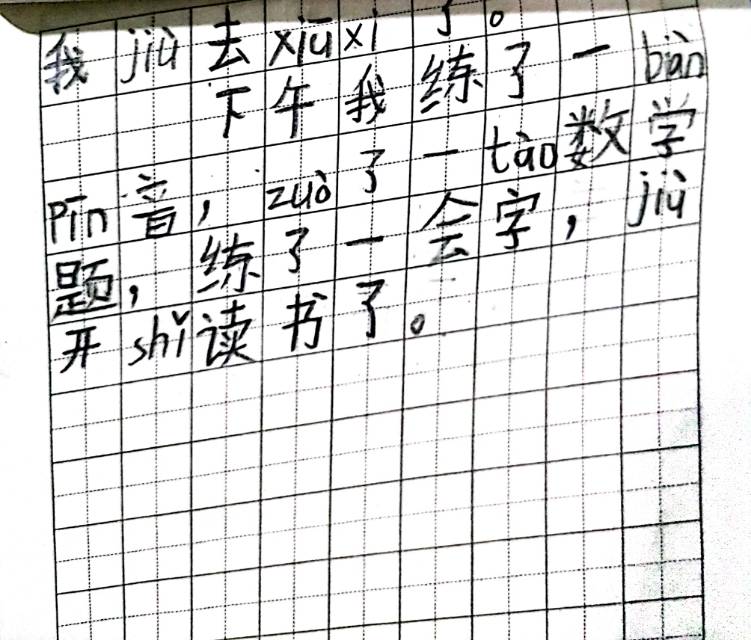 我jiù去xiūxi了。
下午我练了一bàn
pīn音，zuò了一tào数学
题，练了一会字，jiù
开shǐ读书了。